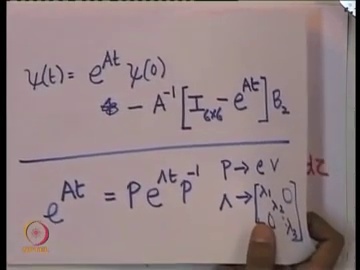 ψ(t) = e^{At} ψ(0)
- A^{-1} [I_{6×6} - e^{At}] B_2
e^{At} = P e^{Λt} P^{-1}
P → e v
Λ → [λ_1 0 λ_2 0 λ_3]